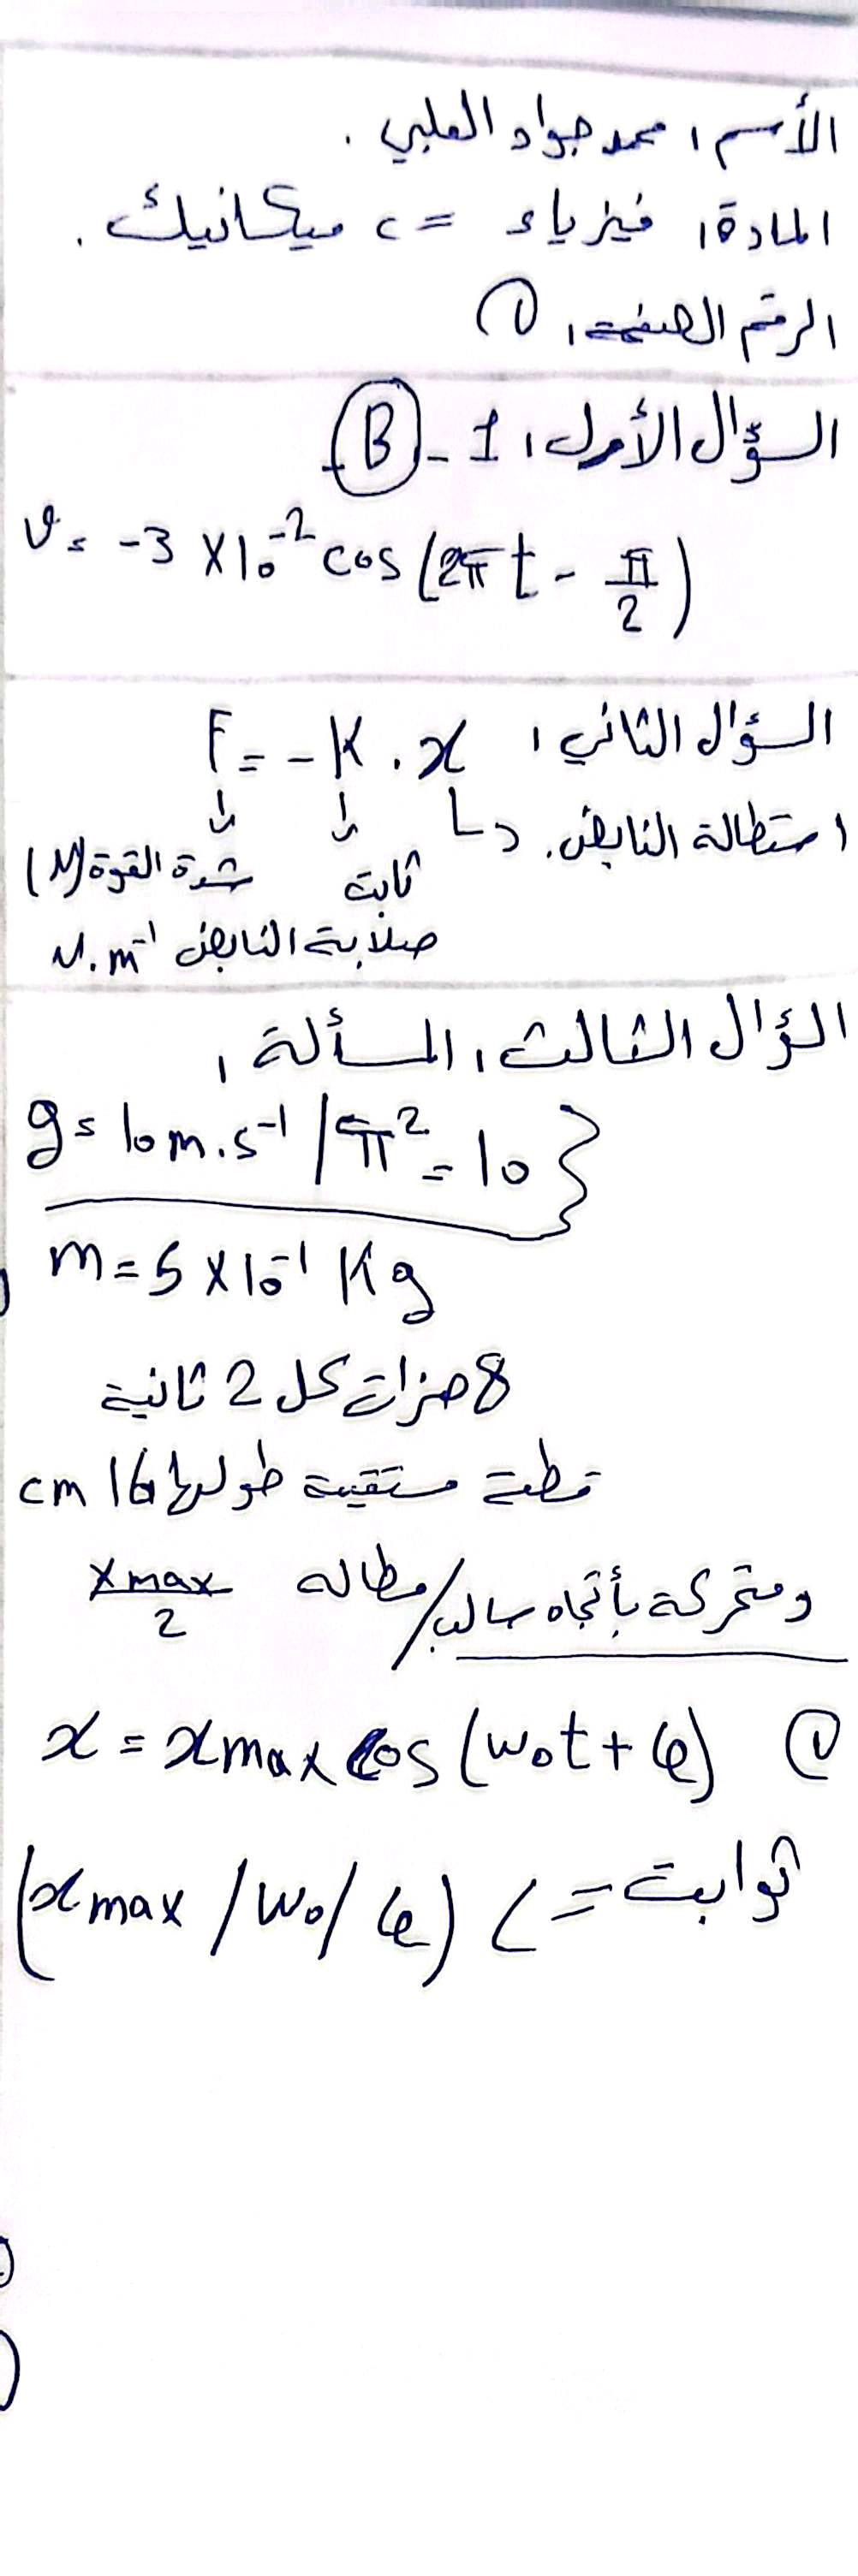 الأسم: محمد جواد العلبي.
المادة: فيزياء => ميكانيك.
الرقم الصفحة: ①
السؤال الأول: 1 - B -
v = -3 × 10⁻² cos (2π t - π/2)
السؤال الثاني: F = - K . x
استطالة النابض.
ثابت شدة القوة (N)
صلابة النابض N.m⁻¹
السؤال الثالث: المسألة:
g = 10 m.s⁻¹ / π² = 10 }
m = 5 × 10⁻¹ Kg
8 هزات كل 2 ثانية
قطعة مستقيمة طولها 16 cm
ومتحركة بأتجاه سالب / مطاله xmax/2
① x = xmax cos (ω₀t + φ)
ثوابت => (xmax / ω₀ / φ)